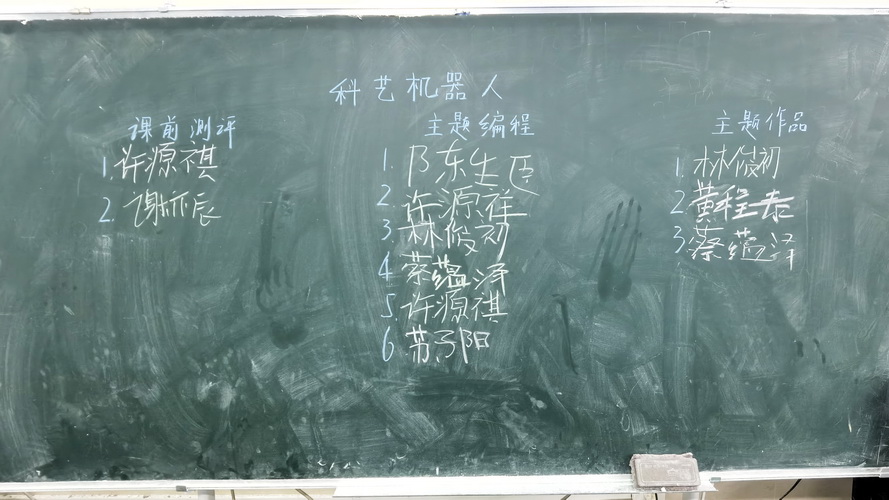 科艺机器人
课前测评
1.许源祺
2.谢亦辰
主题编程
1.陈生
2.许源祥
3.林俊初
4.蔡蕴泽
5.许源祺
6 苏子阳
主题作品
1.林俊初
2.黄程泰
3.蔡蕴泽